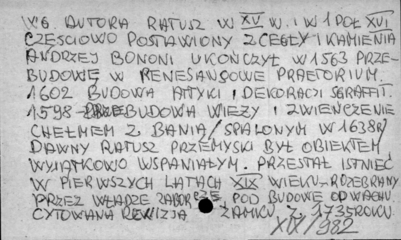 W/G AUTORA RATUSZ W XV W. I W 1 POŁ XVI
CZĘŚCIOWO POSTAWIONY Z CEGŁY I KAMIENIA
ANDRZEJ BONONI UKOŃCZYŁ W 1563 PRZE-
BUDOWĘ W RENESANSOWE PRAETORIUM.
1602 BUDOWA ATTYKI I DEKORACJI SGRAFFIT.
1598 - PRZEBUDOWA WIEŻY I ZWIEŃCZENIE
CHEŁMEM Z BANIĄ/SPALONYM W 1638R/
DAWNY RATUSZ PRZEMYSKI BYŁ OBIEKTEM
WYJĄTKOWO WSPANIAŁYM. PRZESTAŁ ISTNIEĆ
W PIERWSZYCH LATACH XIX WIEKU-ROZEBRANY
PRZEZ WŁADZE ZABORCZE POD BUDOWĘ ODWACHU
CYTOWANA REWIZJA ZAMKU Z 1735 ROKU
XII/982